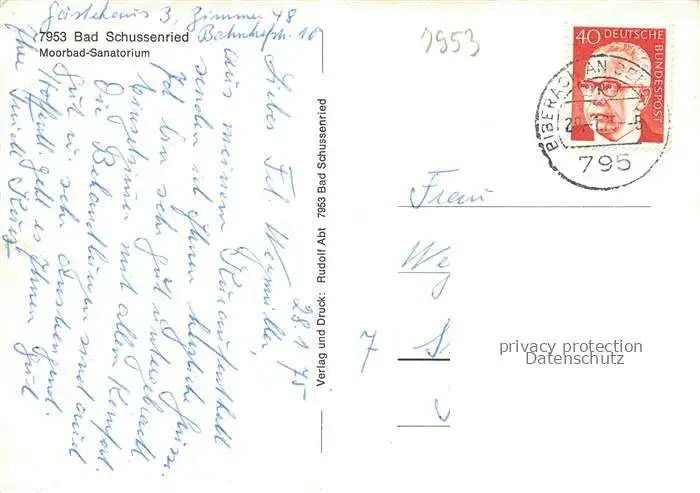 Gästehaus 3, Zimmer 48
Bahnhofstr. 10
7953 Bad Schussenried
Moorbad-Sanatorium
28.1.75
Liebes Frl. Wegmüller,
aus meinem Kuraufenthalt
senden ich Ihnen herzliche Grüsse.
Ich bin sehr gut untergebracht
Einzelzimmer mit allem Komfort.
Die Behandlungen sind auch
gut u. sehr anstrengend.
Hoffentl. geht es Ihnen gut
Ihre Friedl
Verlag und Druck: Rudolf Abt 7953 Bad Schussenried
1953
40 DEUTSCHE
BUNDESPOST
BIBERACH AN DER
795
Frau
We
7 S
privacy protection
Datenschutz